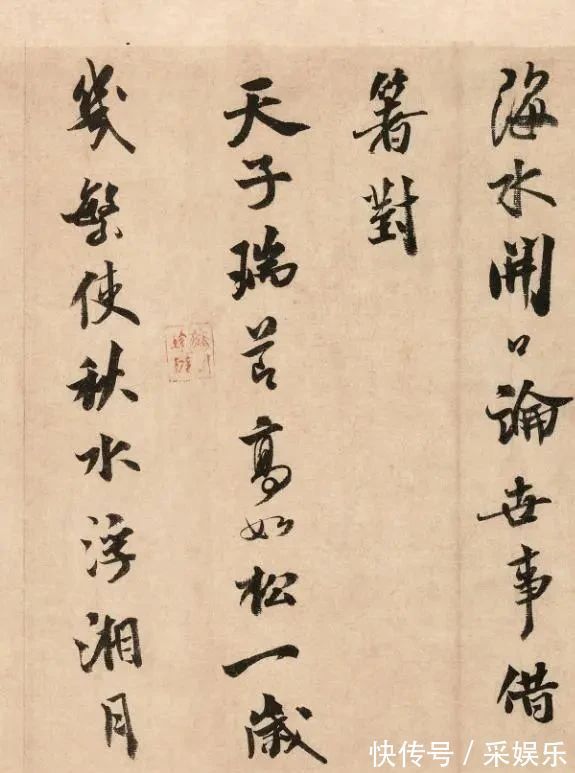 海水開口論世事借
箸對
天子瑞節高如松一歲
幾繁使秋水浮湘月
快传号／采娱乐